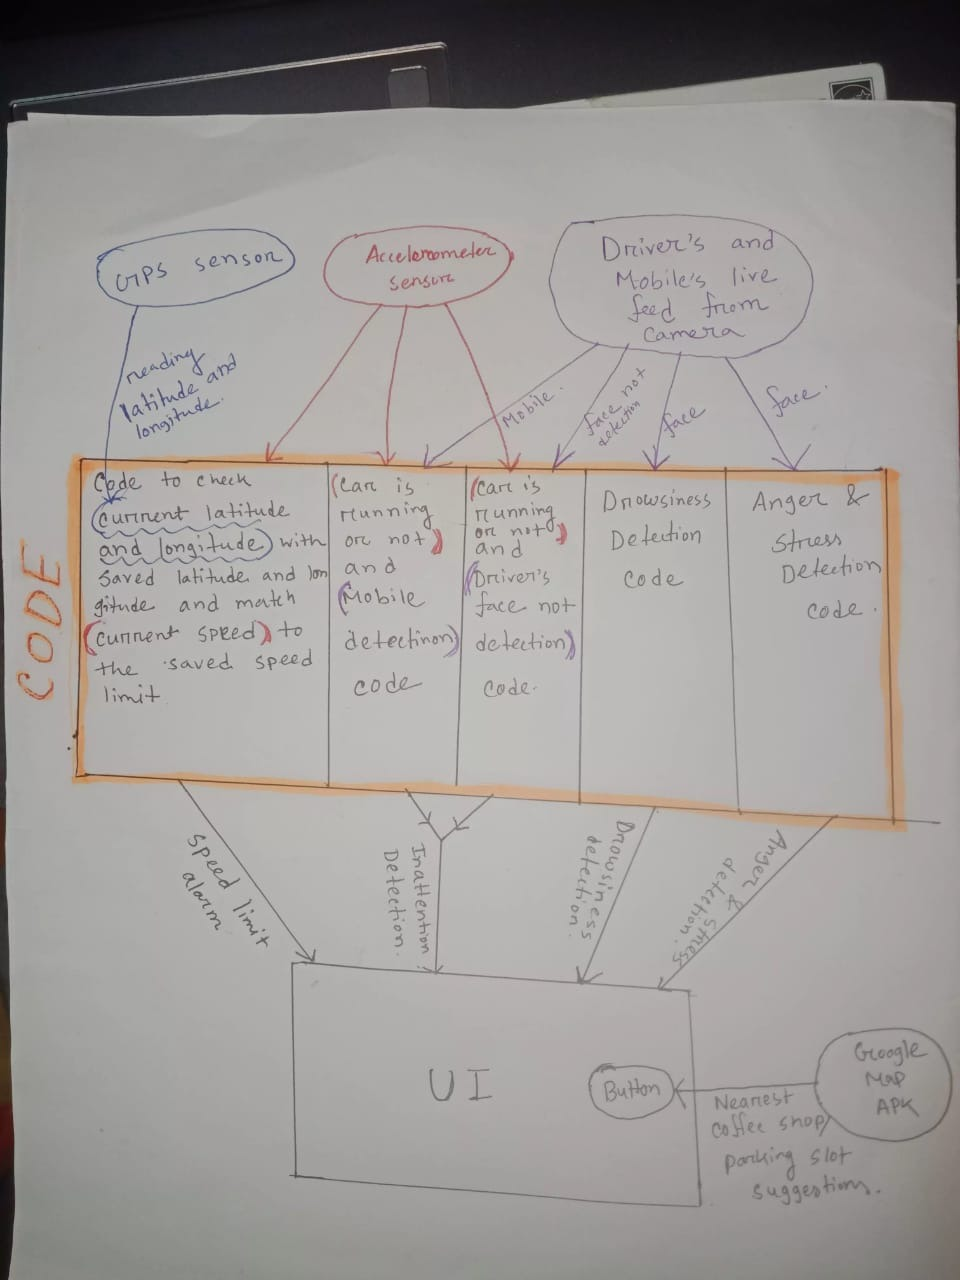 GPS sensor
Accelerometer
sensor
Driver's and
Mobile's live
feed from
camera
reading
latitude and
longitude.
Mobile.
face not
detection
face
face.
CODE
Code to check
current latitude
and longitude) with
saved latitude and lon
gitude and match
(current speed) to
the saved speed
limit
(Car is
running
or not)
and
(Mobile
detectinon)
code
(Car is
running
or not)
and
(Driver's
face not
detection)
code.
Drowsiness
Detection
code
Anger &
stress
Detection
code.
speed limit
alarm
Inattention
Detection.
Drowsiness
detection.
Anger & stress
detection.
UI
Button
Google
Map
APK
Nearest
coffee shop/
parking slot
suggestions.